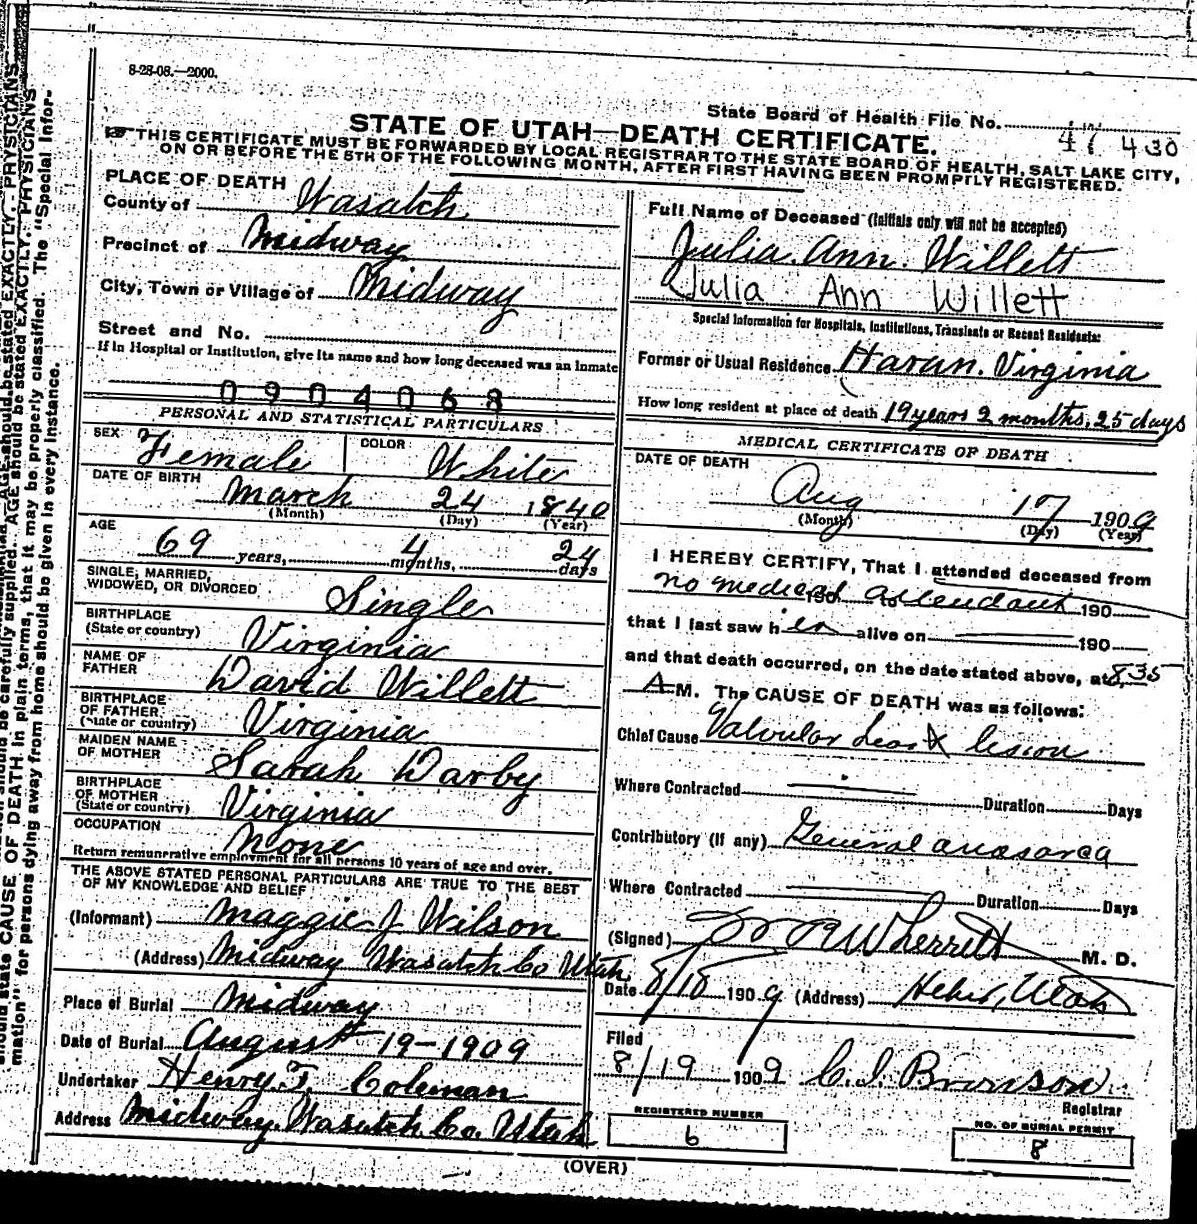 8-28-08.—2000.
State Board of Health File No. 47 430
STATE OF UTAH—DEATH CERTIFICATE.
THIS CERTIFICATE MUST BE FORWARDED BY LOCAL REGISTRAR TO THE STATE BOARD OF HEALTH, SALT LAKE CITY,
ON OR BEFORE THE 5TH OF THE FOLLOWING MONTH, AFTER FIRST HAVING BEEN PROMPTLY REGISTERED.
PLACE OF DEATH
County of Wasatch
Precinct of Midway
City, Town or Village of Midway
Street and No.
If in Hospital or Institution, give its name and how long deceased was an inmate
0904068
PERSONAL AND STATISTICAL PARTICULARS
SEX Female COLOR White
DATE OF BIRTH March 24 1840
(Month) (Day) (Year)
AGE
69 years, 4 months, 24 days
SINGLE, MARRIED,
WIDOWED, OR DIVORCED Single
BIRTHPLACE
(State or country) Virginia
NAME OF
FATHER David Willett
BIRTHPLACE
OF FATHER
(State or country) Virginia
MAIDEN NAME
OF MOTHER Sarah Darby
BIRTHPLACE
OF MOTHER
(State or country) Virginia
OCCUPATION None
Return remunerative employment for all persons 10 years of age and over.
THE ABOVE STATED PERSONAL PARTICULARS ARE TRUE TO THE BEST
OF MY KNOWLEDGE AND BELIEF
(Informant) Maggie J Wilson
(Address) Midway Wasatch Co Utah
Place of Burial Midway
Date of Burial August 19-1909
Undertaker Henry T. Coleman
Address Midway. Wasatch Co. Utah
Full Name of Deceased (Initials only will not be accepted)
Julia Ann. Willett
Julia Ann Willett
Special Information for Hospitals, Institutions, Transients or Recent Residents:
Former or Usual Residence Haran. Virginia
How long resident at place of death 19 years 2 months, 25 days
MEDICAL CERTIFICATE OF DEATH
DATE OF DEATH
Aug 17 1909
(Month) (Day) (Year)
I HEREBY CERTIFY, That I attended deceased from
no medical 190 to attendant 190
that I last saw her alive on 190
and that death occurred, on the date stated above, at 8.35
A M. The CAUSE OF DEATH was as follows:
Chief Cause Valvular heart lesion
Where Contracted Duration Days
Contributory (If any) General anasarca
Where Contracted Duration Days
(Signed) Wherritt M. D.
Date 8/18 1909 (Address) Heber, Utah
Filed
8/19 1909 C. I. Bronson
Registrar
REGISTERED NUMBER
6
NO. OF BURIAL PERMIT
8
(OVER)
should state CAUSE OF DEATH in plain terms, that it may be properly classified. The "Special Infor-
mation" for persons dying away from home should be given in every instance.